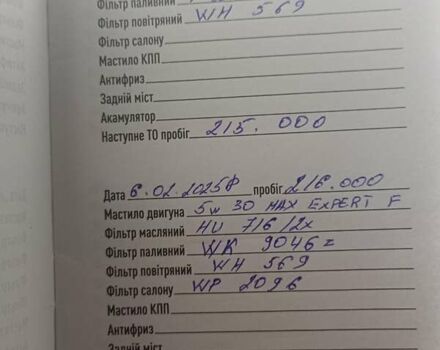 Фільтр паливний
Фільтр повітряний WH 569
Фільтр салону
Мастило КПП
Антифриз
Задній міст
Акамулятор
Наступне ТО пробіг 215.000
Дата 6.02.2025р пробіг 216.000
Мастило двигуна 5w 30 MAX EXPERT F
Фільтр масляний HU 716/2x
Фільтр паливний WK 9046z
Фільтр повітряний WH 569
Фільтр салону WP 2096
Мастило КПП
Антифриз
Задній міст